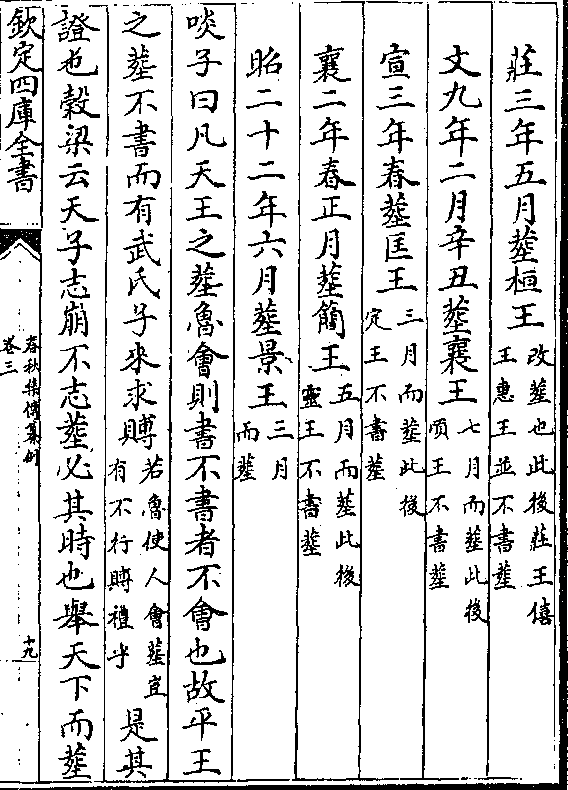 莊三年五月葬桓王改葬也此後莊王僖王惠王並不書葬
文九年二月辛丑葬襄王七月而葬此後頃王不書葬
宣三年春葬匡王三月而葬此後定王不書葬
襄二年春正月葬簡王五月而葬此後靈王不書葬
昭二十二年六月葬景王三月而葬
啖子曰凡天王之葬魯會則書不書者不會也故平王
之葬不書而有武氏子來求賻若魯使人會葬豈有不行賻禮乎是其
證也穀梁云天子志崩不志葬必其時也舉天下而葬
欽定四庫全書
春秋集傳纂例
卷三
十九